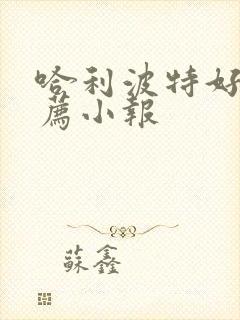 哈利波特好
薦小報
蘇鑫